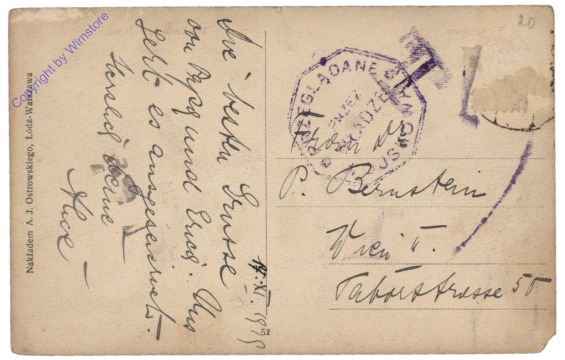 20
Copyright by Wimstore
Nakładem A. J. Ostrowskiego, Łódź-Warszawa
Die besten Grüsse
von und Erich. Uns
geht es ausgezeichnet.
Herzlich
Alice
14. XI. 1919
PRZEGLĄDANE
PRZEZ
WŁADZE
T
P. Bernstein
Wien
Taborstrasse 50